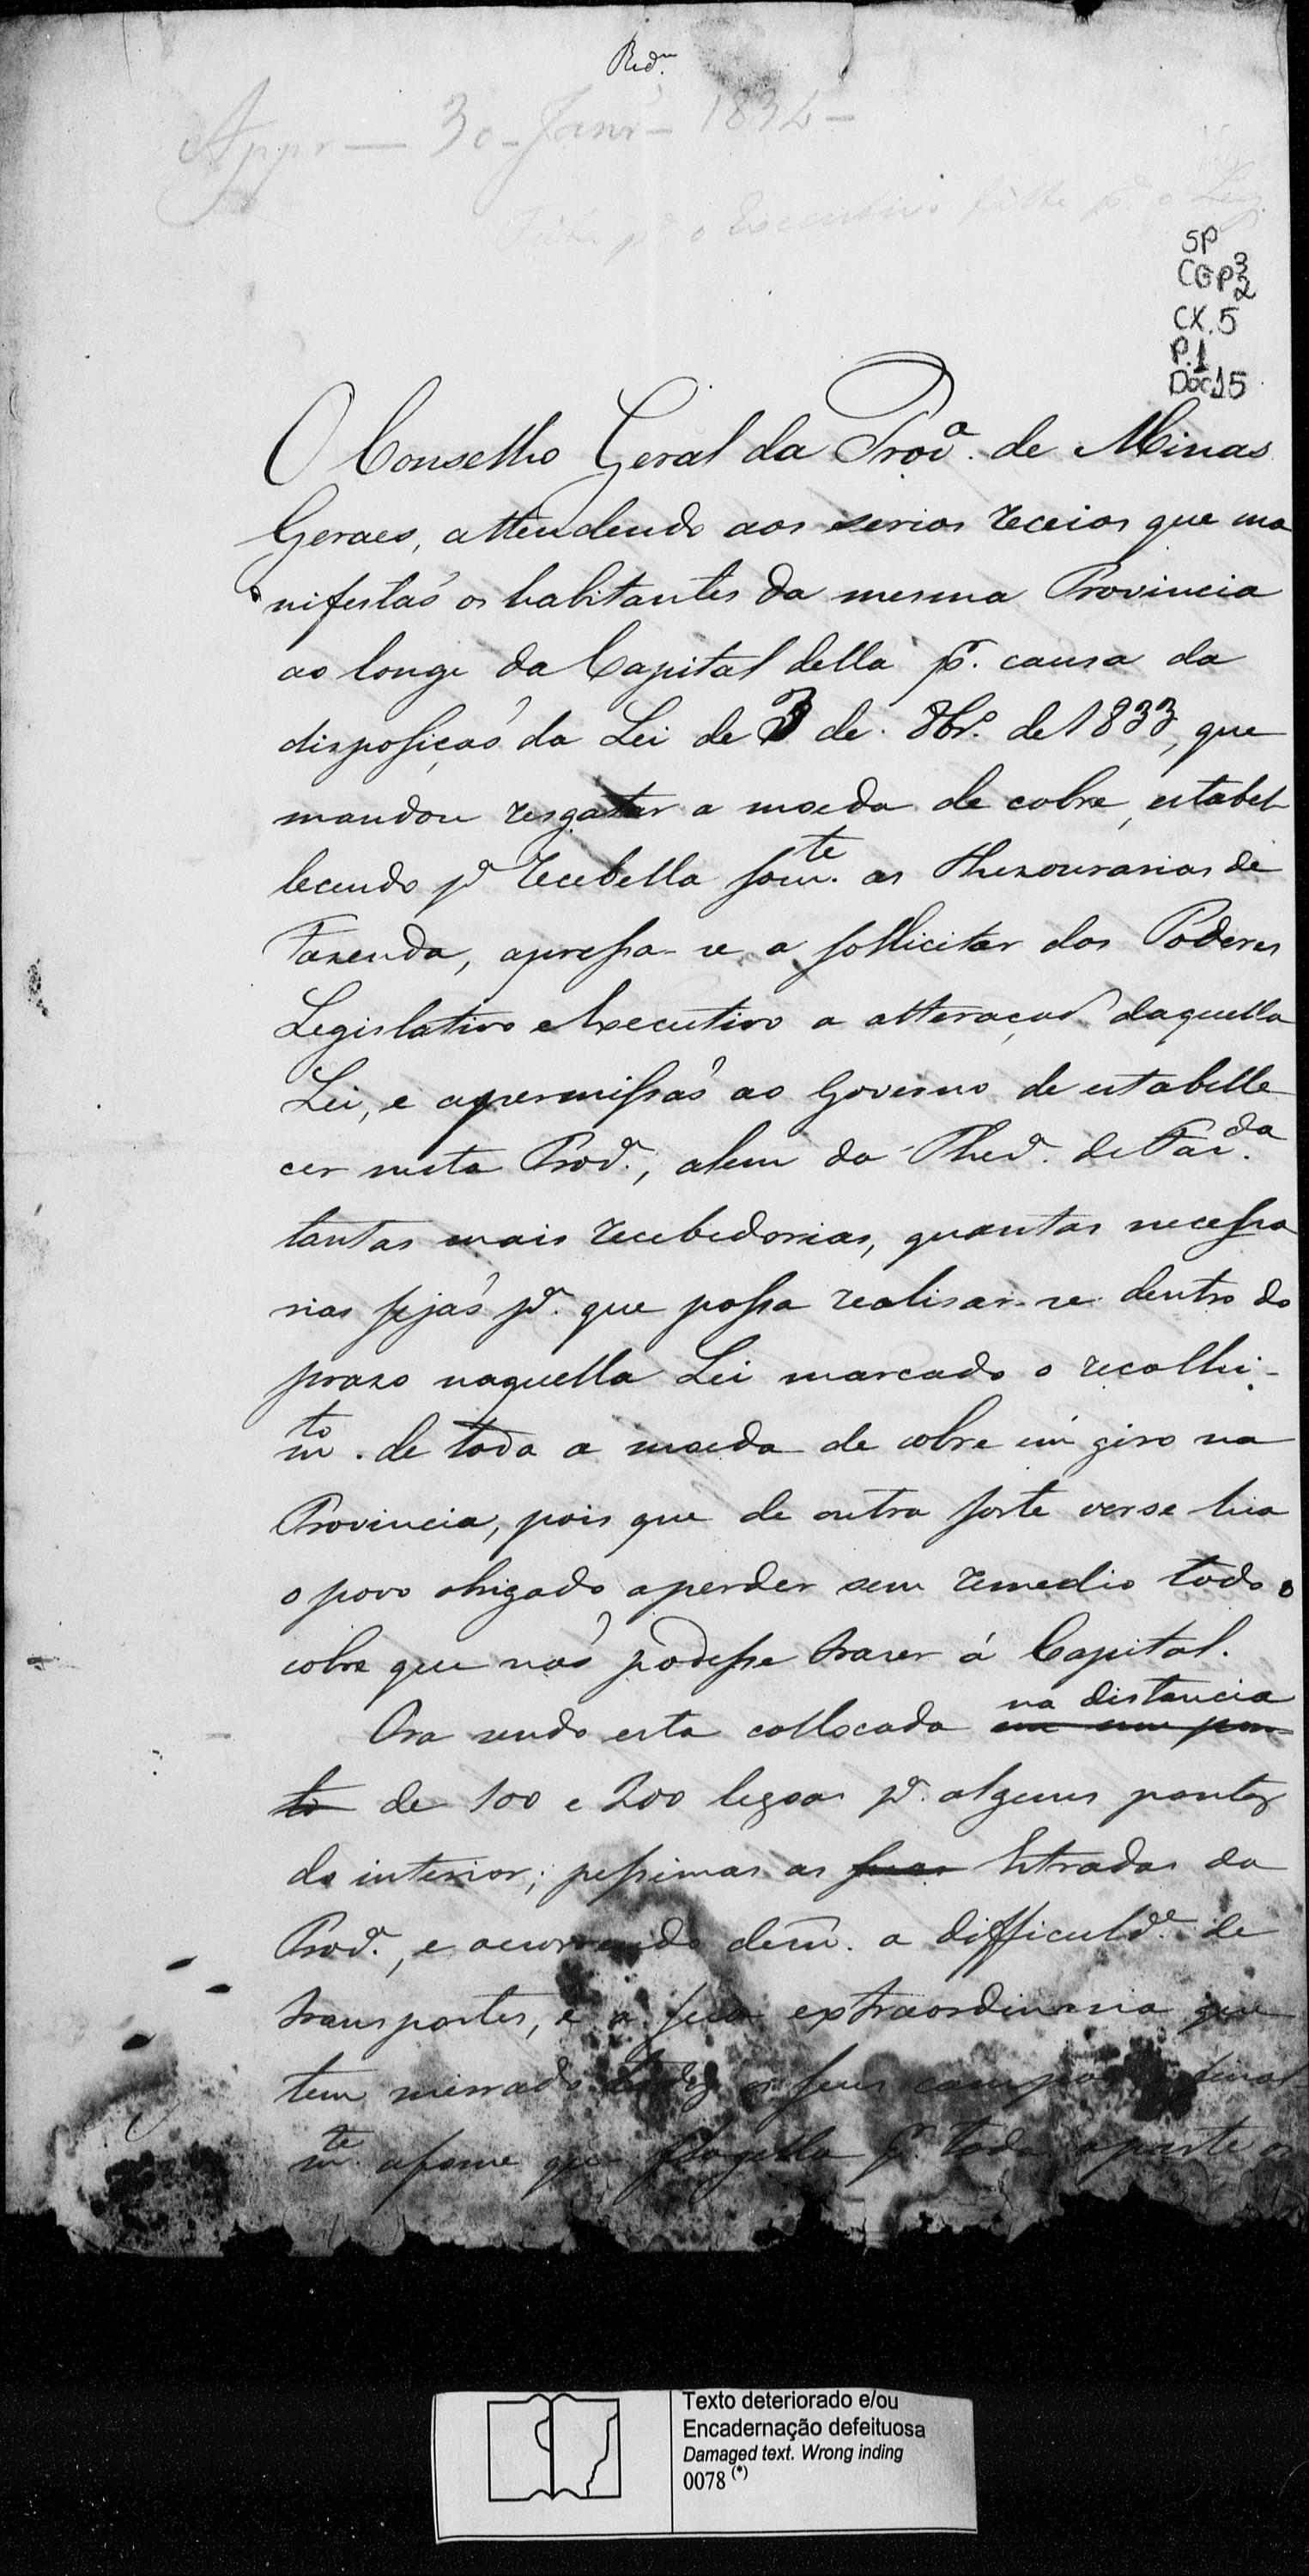 Red.ᵐ
Appr — 30 - Janr.º - 1834 -
p.ª o Executivo falta p.ª o Leg.
SP
CGP 3
2
CX. 5
P. 1
Doc 15
O Conselho Geral da Prov.ª de Minas
Geraes, attendendo aos serios receios que ma
nifestaõ os habitantes da mesma Provincia
ao longe da Capital della p.r causa da
disposiçaõ da Lei de 3 de 8br.º de 1833, que
mandou resgatar a moeda de cobre, estabel
lecendo p.ª recebella som.te as Thezourarias de
Fazenda, apressa-se a sollicitar dos Poderes
Legislativo e Executivo a alteraçaõ daquella
Lei, e a permissaõ ao Governo de estabelle
cer nesta Prov.ª, alem da Thez.ª de Faz.da
tantas mais recebedorias, quantas necessa
rias sejaõ p.ª que possa realisar-se dentro do
praso naquella Lei marcado o recolhi-
m.to de toda a moeda de cobre em giro na
Provincia, pois que de outra sorte ver se hia
o povo obrigado a perder sem remedio todo o
cobre que naõ podesse trazer á Capital.
Ora sendo esta collocada na distancia
em um pon-
to de 100 e 200 legoas p.ª alguns pontos
do interior; pessimas as suas Estradas da
Prov.ª, e acorrendo dem. a difficuld.e de
transportes, e a seca extraordinaria que
tem mirrado todos os seus campos final
m.te a fome que flagella p.r toda a parte os
Texto deteriorado e/ou
Encadernação defeituosa
Damaged text. Wrong inding
0078 (*)